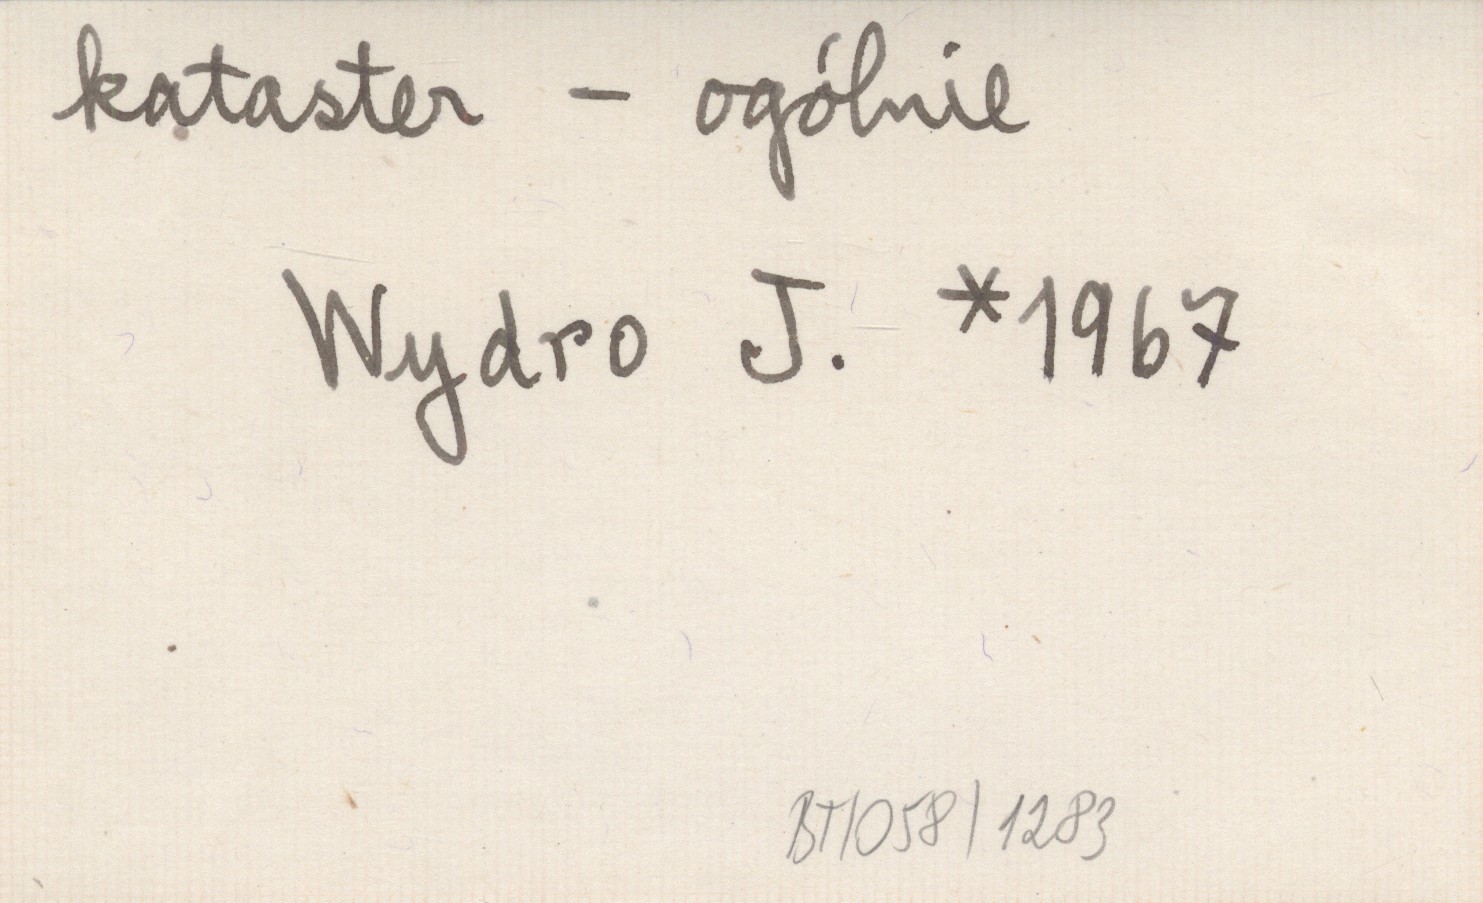 kataster - ogólnie
Wydro J. *1967
BT/058/1283